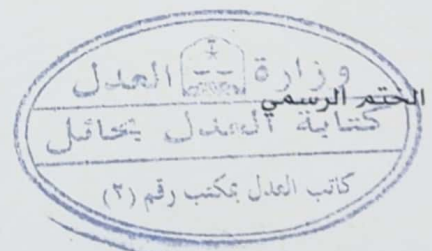 وزارة العدل
الختم الرسمي
كتابة العدل بحائل
كاتب العدل بمكتب رقم (٢)